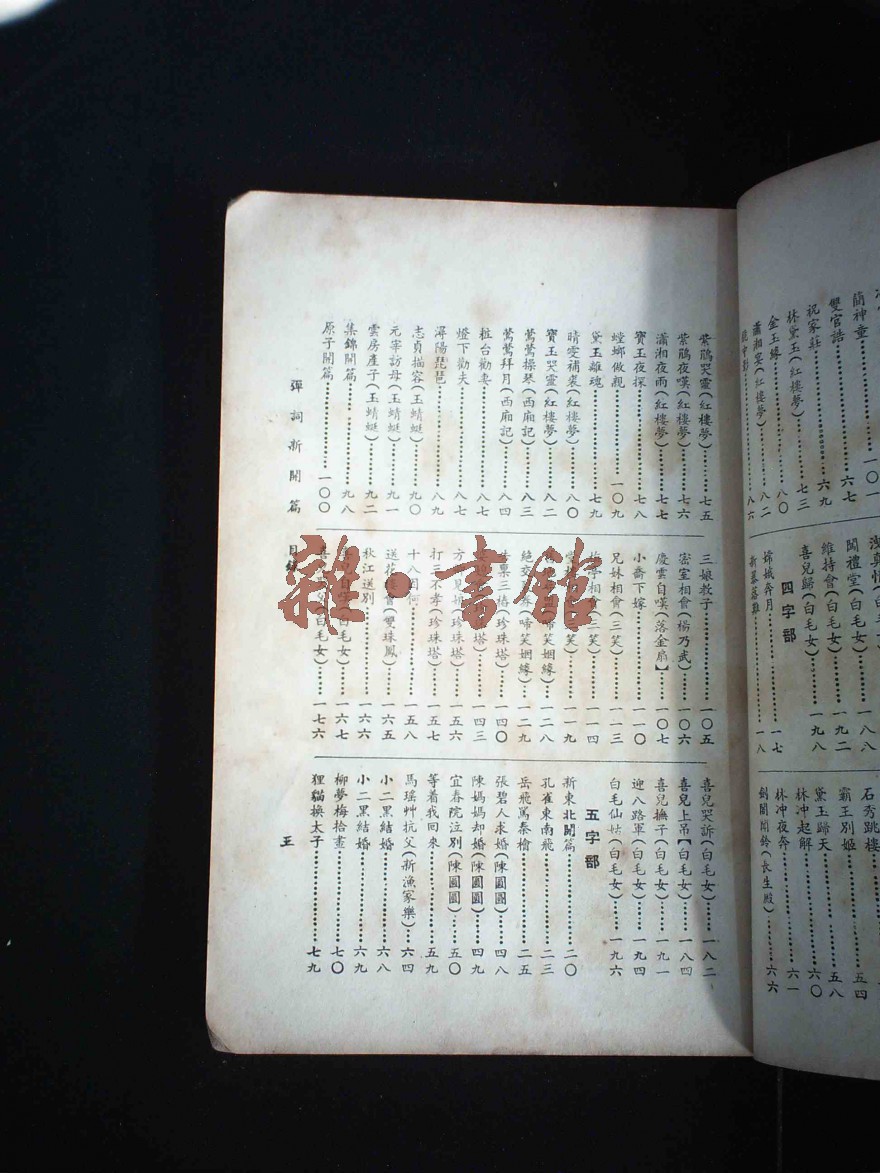 簡神童
雙官誥……六七
祝家莊……六九
林黛玉(紅樓夢)……七三
金玉緣……八〇
瀟湘(紅樓夢)……八二
八六
聞禮堂(白毛女)……一八八
維持會(白毛女)……一九二
喜兒歸(白毛女)……一九八
四字部
嫦娥奔月……一七
一八
石秀跳樓……五四
霸王別姬……五八
黛玉歸天……六〇
林冲起解……六一
林冲夜奔
劍閣聞鈴(長生殿)……六六
紫鵑哭靈(紅樓夢)……七五
紫鵑夜嘆(紅樓夢)……七六
瀟湘夜雨(紅樓夢)……七七
寶玉夜探……七八
螳螂做親……一〇九
黛玉離魂……七九
晴雯補裘(紅樓夢)……八〇
寶玉哭靈(紅樓夢)……八二
鶯鶯操琴(西廂記)
鶯鶯拜月(西廂記)……八四
粧台勸妻……八七
燈下勸夫……八七
潯陽琵琶……八九
志貞描容(玉蜻蜓)……九〇
元宰訪母(玉蜻蜓)……九一
雲房產子(玉蜻蜓)……九二
集錦開篇……九八
原子開篇……一〇〇
三娘教子……一〇五
密室相會(楊乃武)……一〇六
慶雲自嘆(落金扇】……一〇七
小喬下嫁……一一〇
兄妹相會(三笑)……一一三
相會(三笑)……一一四
一一九
(啼笑姻緣)……一二八
絕交(啼笑姻緣)……一二九
三(珍珠塔)……一四〇
一四三
方見娘(珍珠塔)……一五六
打三不孝(珍珠塔)……一五七
十八因何……一五八
送花會(雙珠鳳)……一六五
秋江送別……一六六
自嘆(白毛女)……一六七
喜(白毛女)……一七六
喜兒哭訴(白毛女)……一八二
喜兒上吊【白毛女)……一八四
喜兒撫子(白毛女)……一九一
迎八路軍(白毛女)……一九四
白毛仙姑(白毛女)……一九六
五字部
新東北開篇……二〇
孔雀東南飛……二三
岳飛罵秦檜……二五
張碧人求婚(陳圓圓)……四八
陳媽媽却婚(陳圓圓)……四九
宜春院泣別(陳圓圓)……五〇
等着我回來……五九
馬瑤艸抗父(新漁家樂)……六四
小二黑結婚……六八
小二黑結婚……六九
柳夢梅拾畫……七〇
狸貓換太子……七九
彈詞新開篇 目錄
五
雜·書館